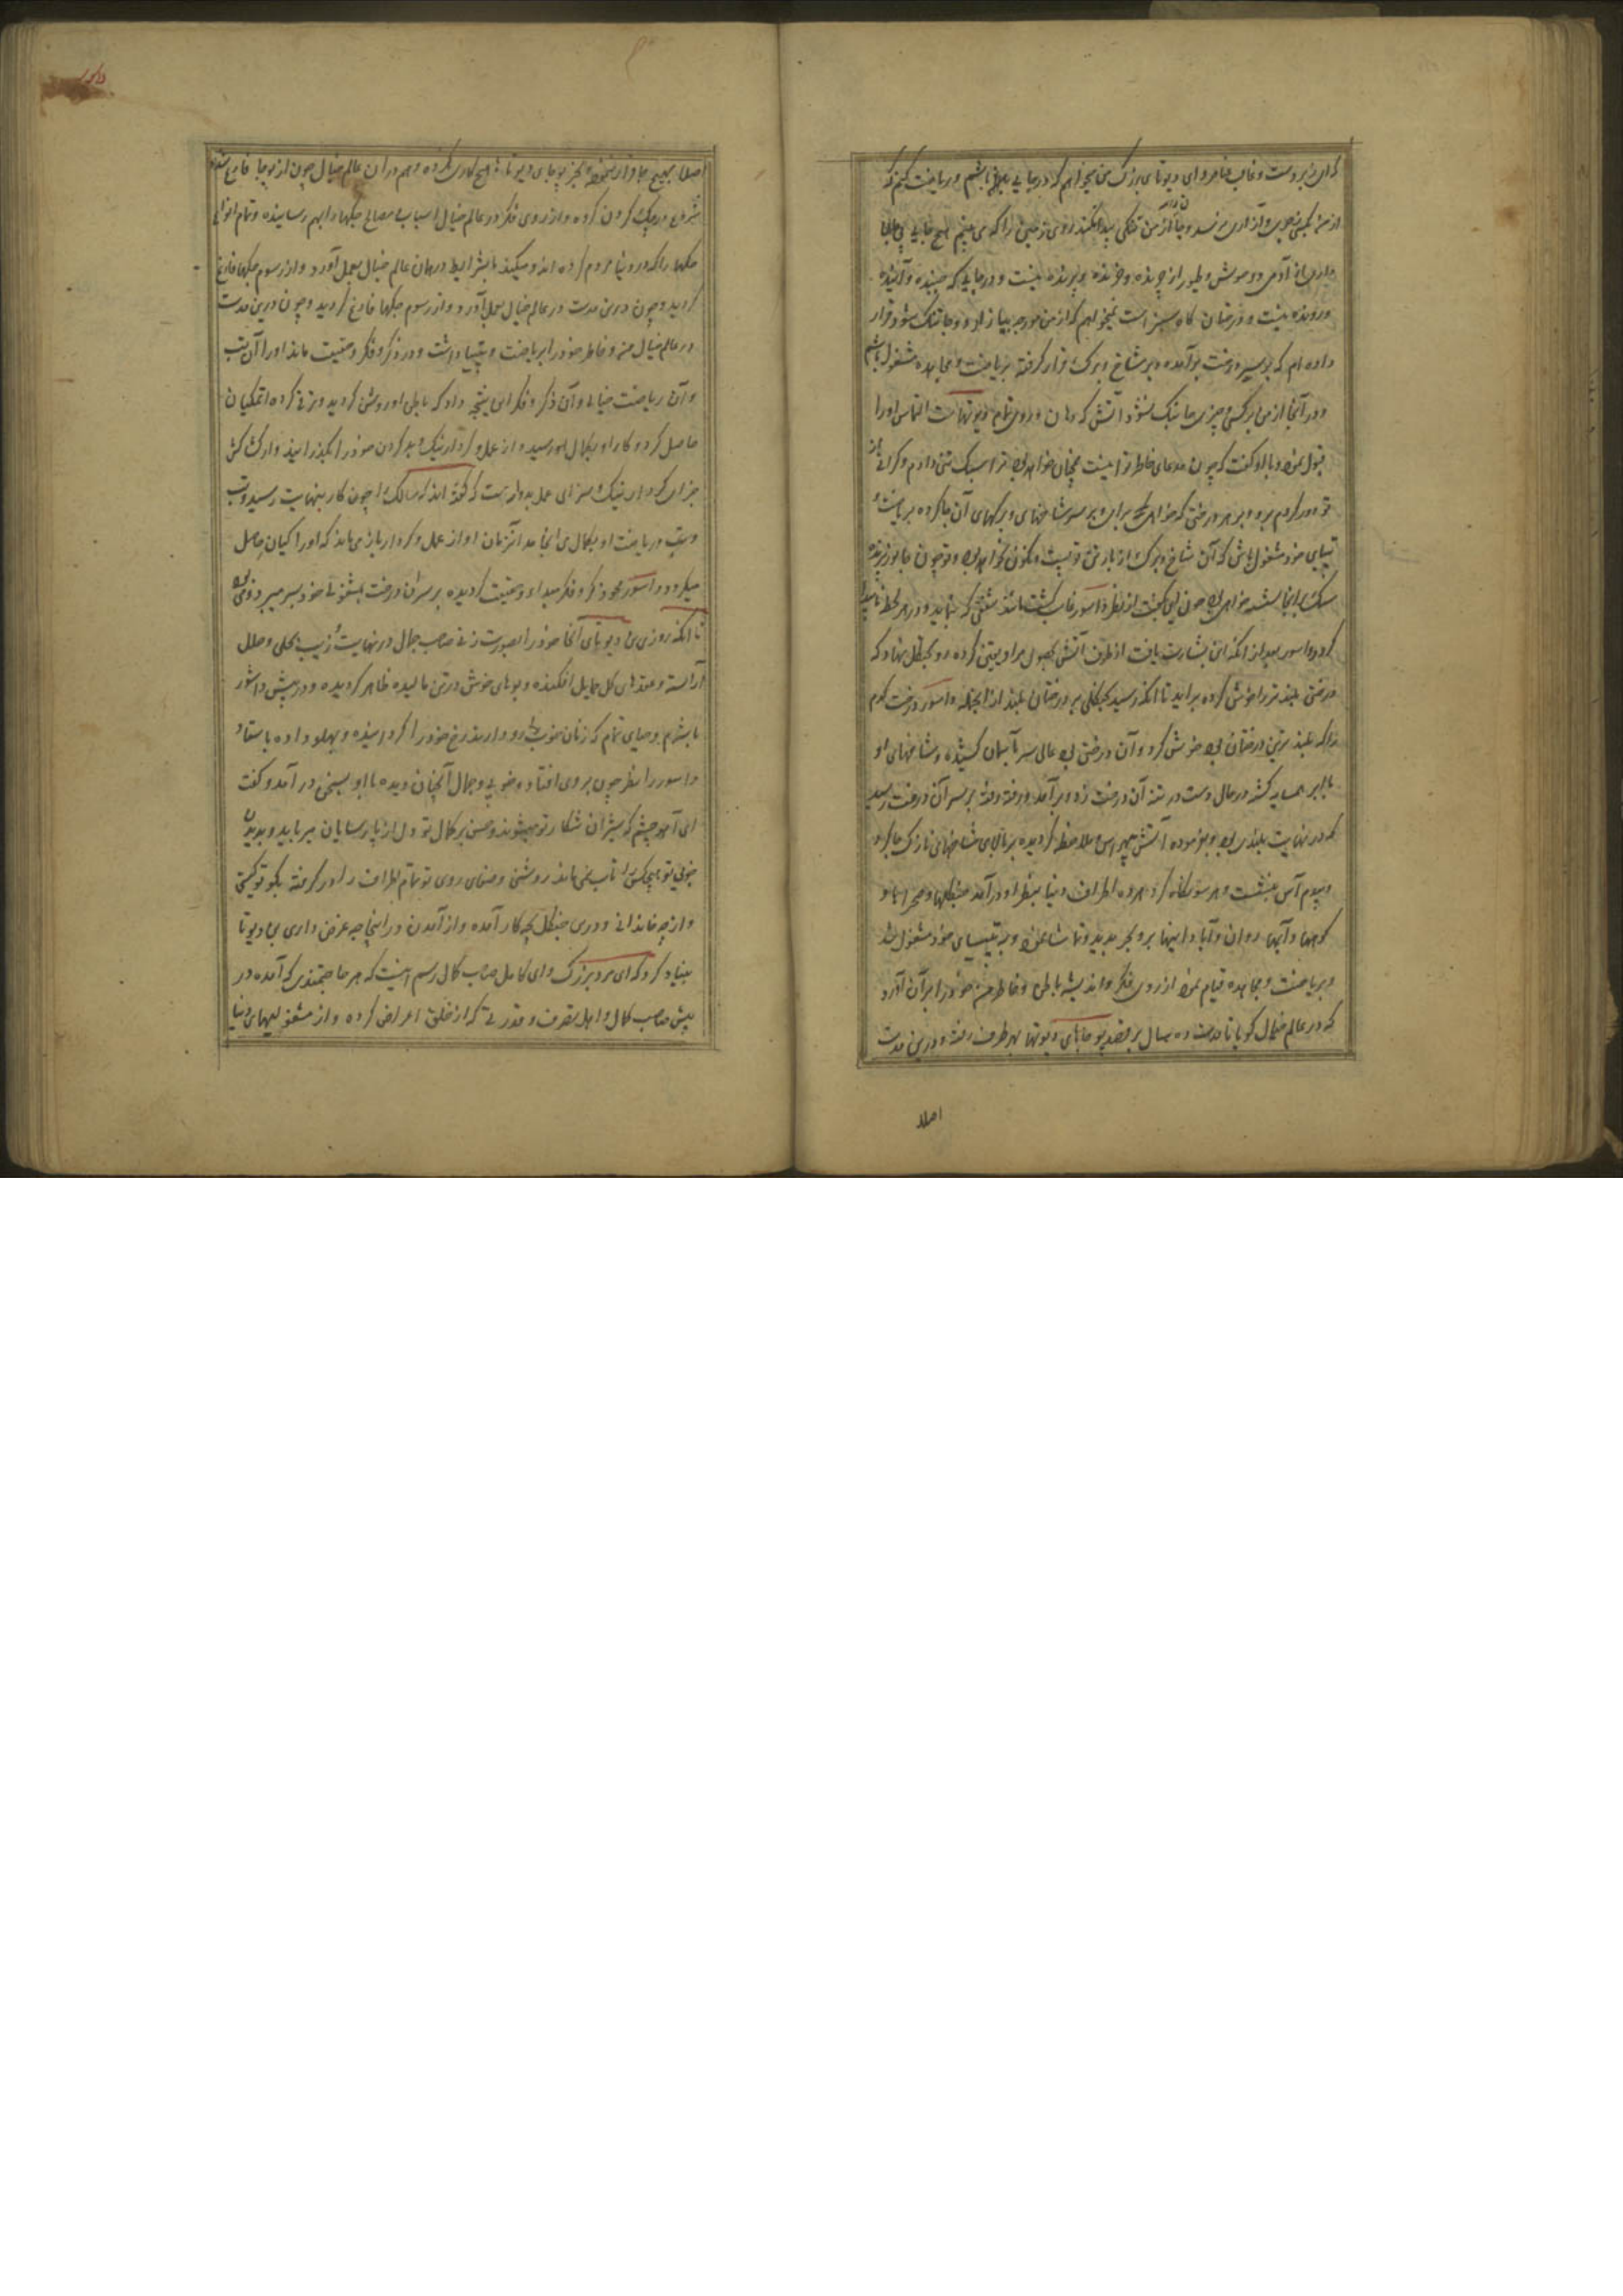 که ای زبردست و غالب بنام و ای دیوتای بزرگ من میخواهم که در جایی باشم و ریاضت کنم که
از من بکسی آزاری نرسد و تنگی پیدا نکند روی زمین را که می بینم هیچ جایی
از آدمی و وحوش و طیور از چرنده و خزنده و پرنده نیست و در جایی که جنبنده و آینده
و رونده نیست و درختان کاه سبز است نمیخواهم که از من مورچه بیازارد و جا تنگ شود قرار
داده ام که بر سر درخت برآمده و بر شاخ و برگ قرار گرفته بریاضت و مجاهده مشغول باشم
و در آنجا از من بر کسی و چیزی جا تنگ نشود آتش که دهان و روی تمام دیوتهاست التماس او را
قبول نمود و با او گفت که چون مدعای خاطر تو اینست همچنان خواهد بود ترا سبک تنی دادم و گرانی از
تو دور کردم برو و بر هر درختی که خواهی برای و بر سر شاخهای و برگهای آن جا کرده بریاضت
تپسای خود مشغول باش که آن شاخ و برگ از بار تو پست و نگون نخواهد بود و تو چون جانور پرنده
سبک بر آنجا نشسته خواهی بود چون این گفت از نظر داسور غایب گشت مانند شفقی که بنماید و در هر لحظه ناپدید
گردد داسور بعد از آنکه این بشارت یافت از طرف آتش بحصول مراد یقین کرده رو بجنگل نهاد که
درختی بلندتر را خوش کرده براید تا آنکه رسید بجنگلی پر درختان بلند از آنجمله داسور درخت کدم
را که بلند ترین درختان بود خوش کرد و آن درختی بود عالی سر بآسمان کشیده و شاخهای او
با ابر همسایه گشته در حال دست در تنه آن درخت زد و برآمد و رفته رفته بر سر آن درخت رسید
که در نهایت بلندی بود و بفرموده آتش بهر سو ملاحظه گردیده بر بالای شاخهای نازک جا کرد
و پدم آسن بنشست و هر سو نگاه کرد هر ده اطراف دنیا بنظر او درآمد جنگلها و صحراها و
کوهها و آبهای روان و آبادانیها بر و بحر بدید و تماشا نمود و به تپسیای خود مشغول شد
و بریاضت و مجاهده قیام نمود از روی فکر و اندیشه باطن و خاطر خود را بر آن آورد
که در عالم خیال گویا تا مدت ده سال بر قصد پوجاهای دیوتها بهر طرف رفته و درین مدت
اصلا
اصلا بهیچ جا قرار نگرفته و بجز پوجای دیوتا هیچ کاری نکرده و هم در آن عالم خیال چون از پوجا فارغ شد
شروع در جگ کردن کرده و از روی فکر در عالم خیال اسباب و مصالح جگها را بهم رسانیده و تمام انواع
جگها را که در دنیا مردم کرده اند و میکنند با شرایط در همان عالم خیال بعمل آورد و از رسوم جگها فارغ
گردید و چون درین مدت در عالم خیال بعمل آورد و از رسوم جگها فارغ گردید و چون درین مدت
در عالم خیال من و خاطر خود را بریاضت و تپسیا داشت و در ذکر و فکر و حقیقت ماند او را آن تپ
و آن ریاضت خیالی و آن ذکر و فکر این نتیجه داد که باطن او روشن گردید و ترقی کرده
حاصل کرد و کار او بکمال رسید و از عمل و کردار نیک و بد کردن خود را بگذرانید
جزای کردار نیک سزای عمل بد وارست که گفته اند که سالک را چون کار بنهایت رسید و تپ
و تپ و ریاضت او بکمال می انجامد آنزمان او از عمل و کردار باز می ماند که او را گیان حاصل
میگردد داسور محو ذکر و فکر مبداء و حقیقت گردیده بر سر آن درخت بمشغولی خود بسر میبرد
تا آنکه روزی بن دیوتای آنجا خود را بصورت زنی صاحب جمال در نهایت زیب بحلی و حلل
آراسته و عقدهای گل حمایل افکنده و بوهای خوش در تن مالیده ظاهر گردیده و در پیش داسور
با شرم و حیای تمام که زنان خوب رو دارند رخ خود را گردانیده و پهلو داده باستاد
داسور را نظر چون بر وی افتاد و خوبی و جمال آنچنان دیده با او بسخن درآمد و گفت
ای آهو چشم که شیران شکار تو میشوند و حسن پر کمال تو دل از پارسایان میرباید و بدیدن
خوبی تو هیچکس را تاب نمی ماند روشنی و صفای روی تو تمام اطراف را در گرفته بگو تو کیستی
و از چه خاندانی و درین جنگل بچه کار آمده و از آمدن در اینجا چه غرض داری بن دیوتا
بنیاد کرد که ای مرد بزرگ و ای کامل صاحب کمال رسم اینست که هر حاجتمندی که آمده در
پیش صاحب کمال و اهل تصرف و قدرتی که از خلق اعراض کرده و از مشغولیهای دنیا